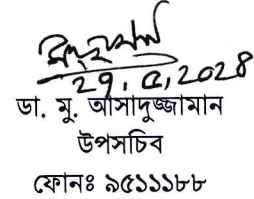 ২৭.৫.২০২৪
ডা. মু. আসাদুজ্জামান
উপসচিব
ফোনঃ ৯৫১১১৮৮